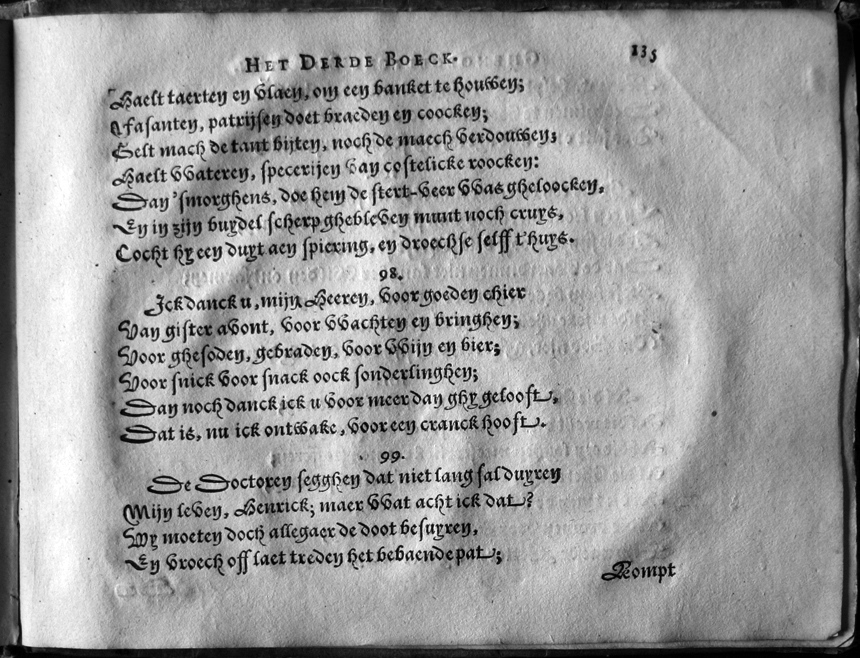 HET DERDE BOECK. 135
Haelt taerten en vlaen, om een banket te houwen;
Fasanten, patrijsen doet braeden en coocken;
Gelt mach de tant bijten, noch de maech verdouwen;
Haelt wateren, specerijen van costelicke roocken:
Dan 'smorghens, doe hem de stert-veer was gheloocken,
En in zijn buydel scherp ghebleven munt noch cruys,
Cocht hy een duyt aen spiering, en droechse selff t'huys.
98.
Ick danck u, mijn Heeren, voor goeden chier
Van gister avont, voor wachten en bringhen;
Voor ghesoden, gebraden, voor wijn en bier;
Voor snick voor snack oock sonderlinghen;
Dan noch danck ick u voor meer dan ghy gelooft,
Dat is, nu ick ontwake, voor een cranck hooft.
99.
De Doctoren segghen dat niet lang sal duyren
Mijn leven, Henrick; maer wat acht ick dat?
Wy moeten doch allegaer de doot besuyren,
En vroech off laet treden het bebaende pat;
Kompt